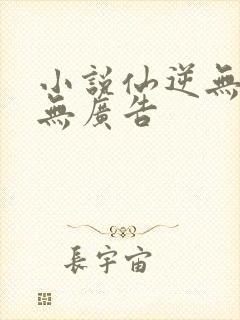 小說仙逆無
無廣告
長宇宙